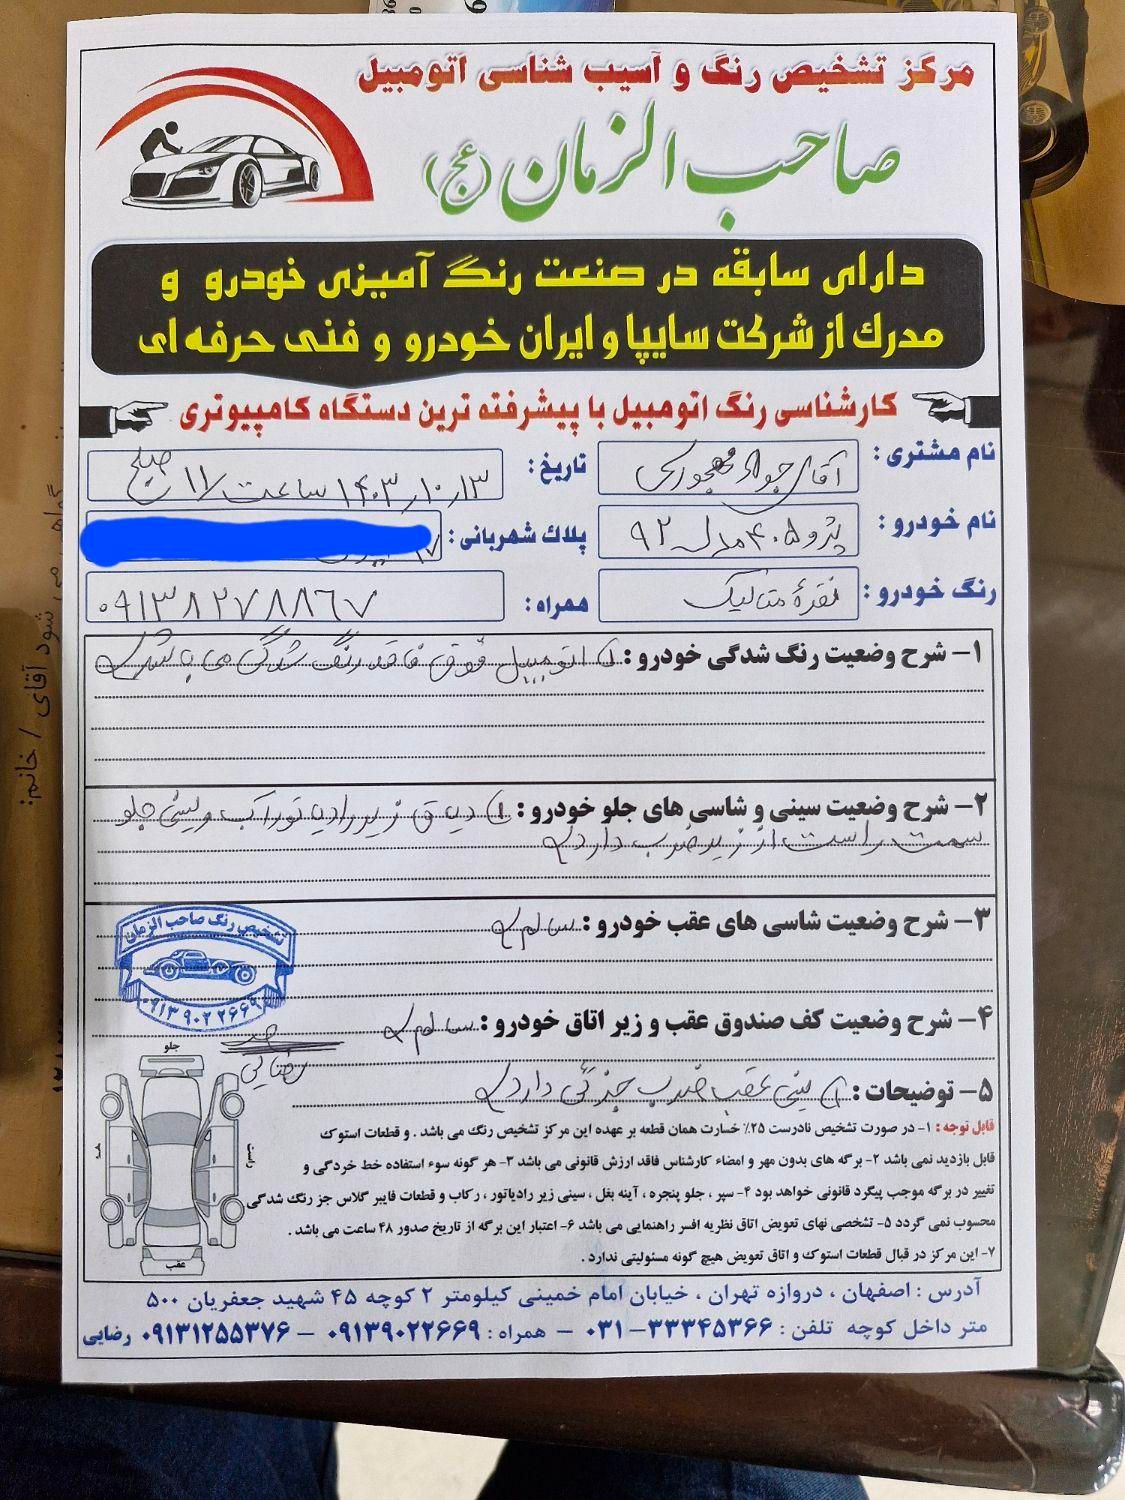 مرکز تشخیص رنگ و آسیب شناسی اتومبیل
صاحب الزمان (عج)
دارای سابقه در صنعت رنگ آمیزی خودرو و
مدرک از شرکت سایپا و ایران خودرو و فنی حرفه ای
کارشناسی رنگ اتومبیل با پیشرفته ترین دستگاه کامپیوتری
نام مشتری : آقای جواد مهجوری تاریخ : ۱۴۰۳٫۱۰٫۱۳ ساعت ۱۱ صبح
نام خودرو : پژو ۴۰۵ مدل ۹۲ پلاک شهربانی :
رنگ خودرو : نقره متالیک همراه : ۰۹۱۳۸۲۷۸۸۶۷
۱- شرح وضعیت رنگ شدگی خودرو : ۱) اتومبیل فوق فاقد رنگ شدگی می باشد
۲- شرح وضعیت سینی و شاسی های جلو خودرو : ۱) دیاق زیر رادیاتور اکب و سینی جلو
سمت راست از زیر ضرب دارد
۳- شرح وضعیت شاسی های عقب خودرو : سالم
تشخیص رنگ صاحب الزمان
۰۹۱۳ ۹۰۲ ۲۶۶۹
۴- شرح وضعیت کف صندوق عقب و زیر اتاق خودرو : سالم
رضایی
۵- توضیحات : ۱) سینی عقب ضرب جزئی دارد
جلو
چپ
راست
عقب
قابل توجه : ۱- در صورت تشخیص نادرست ۲۵٪ خسارت همان قطعه بر عهده این مرکز تشخیص رنگ می باشد . و قطعات استوک
قابل بازدید نمی باشد ۲- برگه های بدون مهر و امضاء کارشناس فاقد ارزش قانونی می باشد ۳- هر گونه سوء استفاده خط خردگی و
تغییر در برگه موجب پیگرد قانونی خواهد بود ۴- سپر ، جلو پنجره ، آینه بغل ، سینی زیر رادیاتور ، رکاب و قطعات فایبر گلاس جز رنگ شدگی
محسوب نمی گردد ۵- تشخصی نهای تعویض اتاق نظریه افسر راهنمایی می باشد ۶- اعتبار این برگه از تاریخ صدور ۴۸ ساعت می باشد .
۷- این مرکز در قبال قطعات استوک و اتاق تعویض هیچ گونه مسئولیتی ندارد .
آدرس : اصفهان ، دروازه تهران ، خیابان امام خمینی کیلومتر ۲ کوچه ۴۵ شهید جعفریان ۵۰۰
متر داخل کوچه تلفن : ۳۳۳۴۵۳۶۶-۰۳۱ - همراه : ۰۹۱۳۹۰۲۲۶۶۹ - ۰۹۱۳۱۲۵۵۳۷۶ رضایی
شود آقای / خانم: